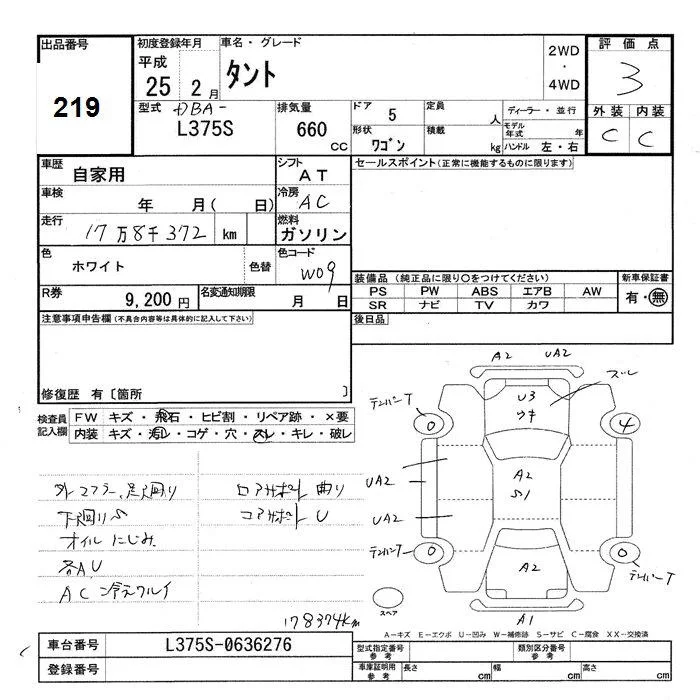 出品番号
219
初度登録年月
平成
25 2月
車名・グレード
タント
2WD
・
4WD
評価点
3
外装 内装
C C
型式 DBA-
L375S
排気量
660
CC
ドア 5
形状 ワゴン
定員 人
積載 kg
ディーラー・並行
モデル年式 年
ハンドル 左・右
車歴
自家用
シフト
AT
車検
年 月( 日)
冷房
AC
走行
17万8千372 km
燃料
ガソリン
色
ホワイト 色替
色コード
W09
R券
9,200円
名変通知期限
月 日
セールスポイント(正常に機能するものに限ります)
装備品(純正品に限り○をつけてください)
PS PW ABS エアB AW
SR ナビ TV カワ
新車保証書
有・無
後日品
注意事項申告欄(不具合内容等は具体的に記入して下さい)
修復歴 有〔箇所 〕
検査員
記入欄
FW キズ・飛石・ヒビ割・リペア跡・×要
内装 キズ・汚レ・コゲ・穴・スレ・キレ・破レ
外マフラー、足廻り
下廻りS
オイルにじみ
各A,U
AC冷えワルイ
ロアサポート曲り
コアサポートU
178374km
A2 UA2
スレ
U3
ウキ
テンパーT
0
4
A2
S1
UA2
UA2
テンパーT
0
0
テンパーT
A2
A1
スペア
A-キズ E-エクボ U-凹み W-補修跡 S-サビ C-腐食 XX-交換済
車台番号
L375S-0636276
登録番号
型式指定番号
参考
類別区分番号
参考
車庫証明用
参考
長さ cm
幅 cm
高さ cm